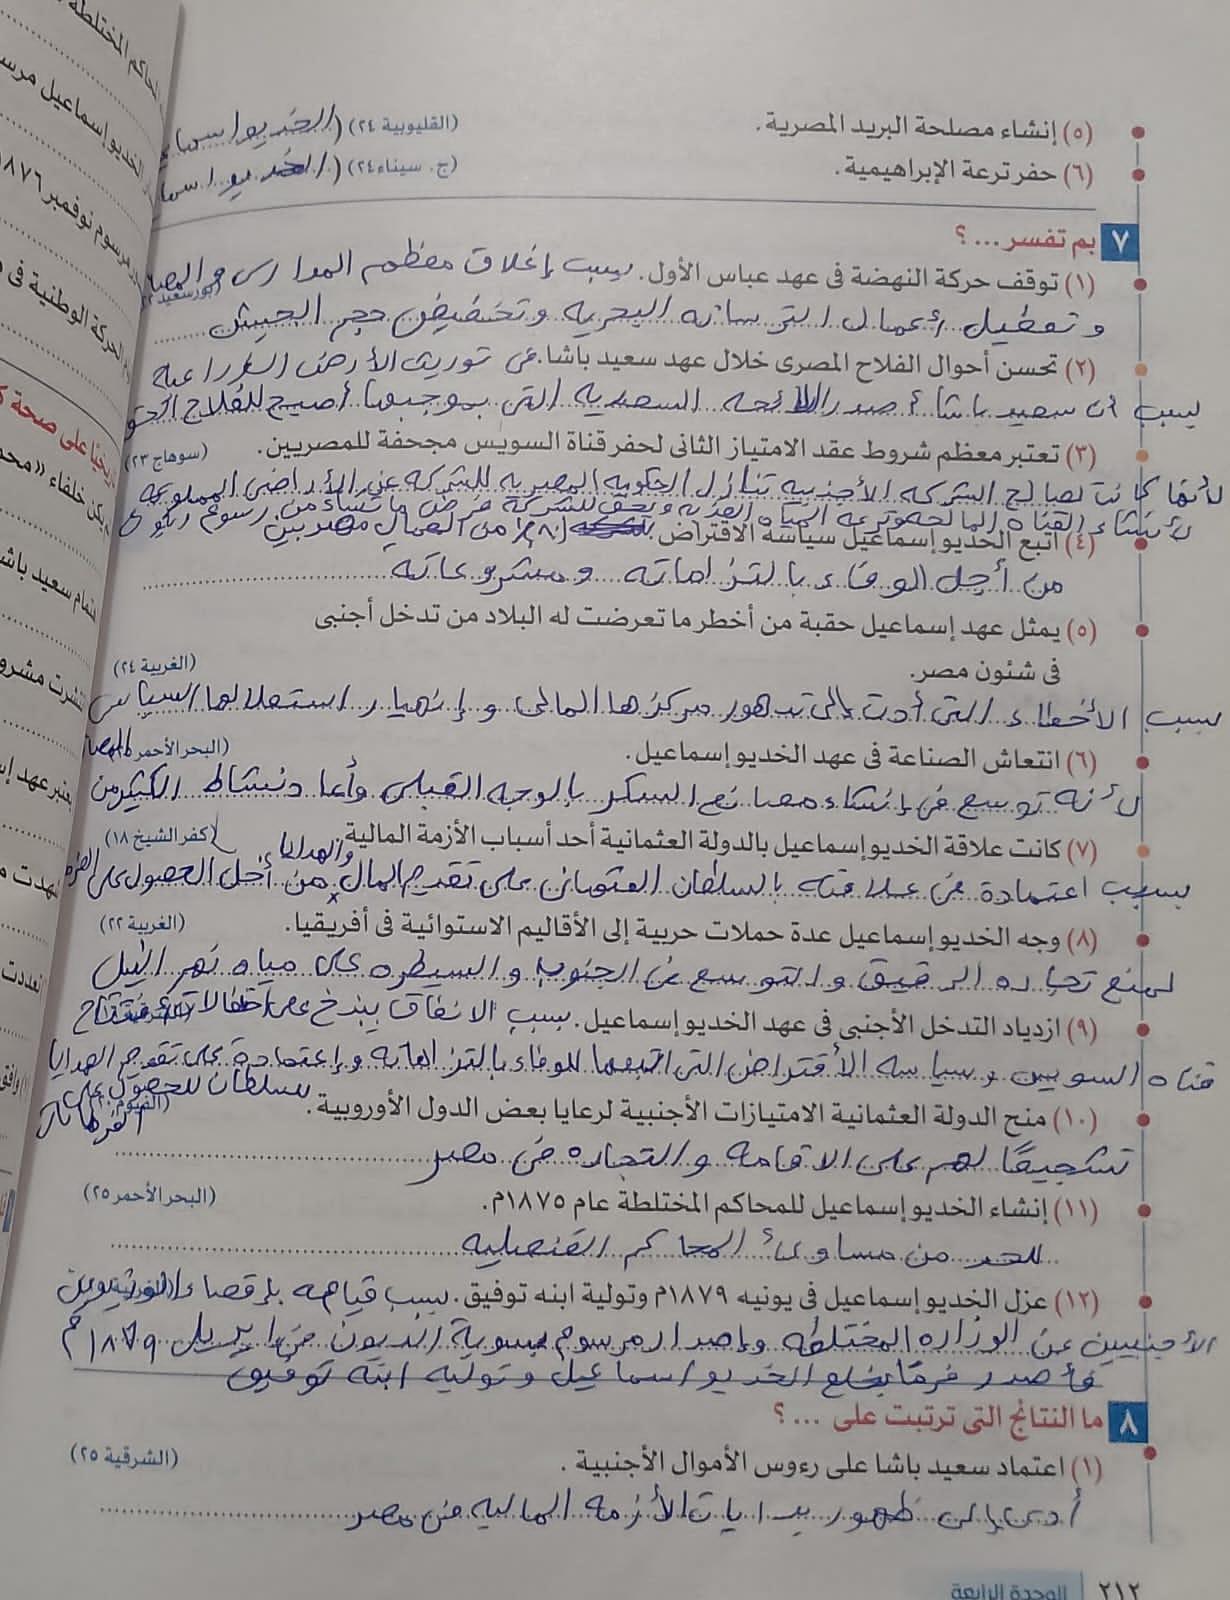 (٥) إنشاء مصلحة البريد المصرية. (القليوبية ٢٤) (الخديو اسما
(٦) حفر ترعة الإبراهيمية. (ج. سيناء ٢٤) (الخديو اسما
٧ بم تفسر ... ؟
(١) توقف حركة النهضة فى عهد عباس الأول. بسبب إغلاق معظم المدارس و المصا
(بورسعيد
وتعطيل أعمال الترسانه البحريه وتخفيض حجم الجيش
(٢) تحسن أحوال الفلاح المصرى خلال عهد سعيد باشا. فى توريث الأرض الزراعيه
بسبب أن سعيد باشا أصدر اللائحه السعديه التى بموجبها أصبح للفلاح الحق
(٣) تعتبر معظم شروط عقد الامتياز الثانى لحفر قناة السويس مجحفة للمصريين. (سوهاج ٢٣)
لأنها كانت لصالح الشركه الأجنبيه تنازل الحكومه المصريه للشركه عن الأراضى المملوكه
لأنشاء القناه المالحه وترعه المياه العذبه ويحق للشركه فرض ما تشاء من رسوم
(٤) اتبع الخديو إسماعيل سياسة الاقتراض. من العمال مصريين
من أجل الوفاء بالتزاماته ومشروعاته
(٥) يمثل عهد إسماعيل حقبة من أخطر ما تعرضت له البلاد من تدخل أجنبى
فى شئون مصر. (الغربية ٢٤)
بسبب الأخطاء التى أدت إلى تدهور مركزها المالى و إنهيار استقلالها السياسى
(٦) انتعاش الصناعة فى عهد الخديو إسماعيل. (البحر الأحمر المصا
لأنه توسع فى إنشاء مصانع السكر بالوجه القبلى وأعاد نشاط الكثير من
(٧) كانت علاقة الخديو إسماعيل بالدولة العثمانية أحد أسباب الأزمة المالية. (كفر الشيخ ١٨)
والهدايا
بسبب اعتمادة فى علاقته بالسلطان العثمانى على تقديم المال من أجل الحصول على
(٨) وجه الخديو إسماعيل عدة حملات حربية إلى الأقاليم الاستوائية فى أفريقيا. (الغربية ٢٢)
لمنع تجاره الرقيق و التوسع فى الجنوب و السيطره على مياه نهر النيل
(٩) ازدياد التدخل الأجنبى فى عهد الخديو إسماعيل. بسبب الانفاق ببذخ على احتفالات افتتاح
قناه السويس وسياسه الأقتراض التى اتبعها للوفاء بالتزاماته وإعتمادة على تقديم الهدايا
للسلطان للحصول على
(١٠) منح الدولة العثمانية الامتيازات الأجنبية لرعايا بعض الدول الأوروبية. (الفيوم الفرمانات
تشجيعًا لهم على الاقامه و التجاره فى مصر
(١١) إنشاء الخديو إسماعيل للمحاكم المختلطة عام ١٨٧٥م. (البحر الأحمر ٢٥)
للحد من مساوئ المحاكم القنصليه
(١٢) عزل الخديو إسماعيل فى يونيه ١٨٧٩م وتولية ابنه توفيق. بسبب قيامه بإقصاء الوزيرين
الأجنبيين عن الوزاره المختلطه وإصدار مرسوم بسوية الديون فى ابريل ١٨٧٩م
فأصدر فرمًا بخلع الخديو اسماعيل وتوليه ابنه توفيق
٨ ما النتائج التى ترتبت على ... ؟
(١) اعتماد سعيد باشا على رءوس الأموال الأجنبية. (الشرقية ٢٥)
أدى إلى ظهور بدايات الأزمه الماليه فى مصر
٢١٢ الوحدة الرابعة